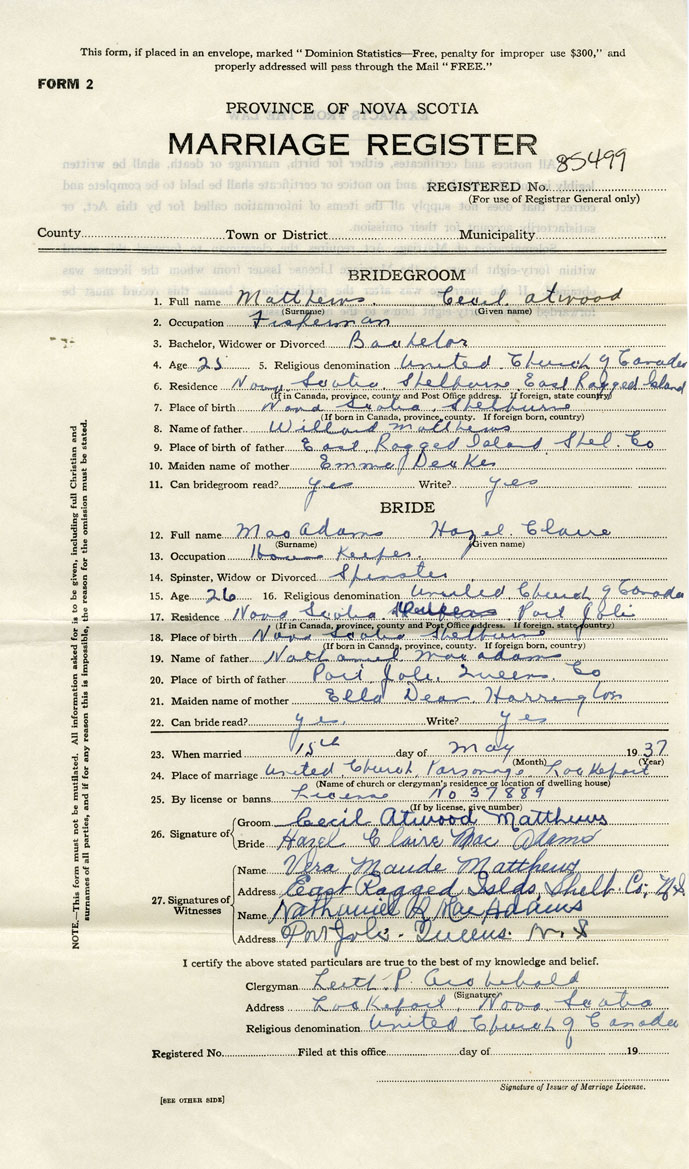 This form, if placed in an envelope, marked "Dominion Statistics—Free, penalty for improper use $300," and
properly addressed will pass through the Mail "FREE."
FORM 2
PROVINCE OF NOVA SCOTIA
MARRIAGE REGISTER
85499
REGISTERED No.
(For use of Registrar General only)
County Town or District Municipality
BRIDEGROOM
1. Full name Matthews. Cecil atwood
(Surname) (Given name)
2. Occupation Fisherman
3. Bachelor, Widower or Divorced Bachelor
4. Age 25 5. Religious denomination United Church of Canada
6. Residence Nova Scotia Shelburne East Ragged Island
(If in Canada, province, county and Post Office address. If foreign, state country)
7. Place of birth Nova Scotia Shelburne
(If born in Canada, province, county. If foreign, country)
8. Name of father Willard Matthews
9. Place of birth of father East Ragged Island Shel. Co
10. Maiden name of mother Emma
11. Can bridegroom read? yes Write? yes
BRIDE
12. Full name MacAdams Hazel Claire
(Surname) (Given name)
13. Occupation House Keeper
14. Spinster, Widow or Divorced Spinster
15. Age 26 16. Religious denomination United Church of Canada
17. Residence Nova Scotia Port Joli
(If in Canada, province, county and Post Office address. If foreign, state country)
18. Place of birth Nova Scotia Shelburne
(If born in Canada, province, county. If foreign, country)
19. Name of father Nathaniel Macadams
20. Place of birth of father Port Joli, Queens Co
21. Maiden name of mother Ella Dean Harrington
22. Can bride read? yes. Write? yes
23. When married 15th day of May 1937
(Month) (Year)
24. Place of marriage United Church Parsonage Lockeport
(Name of church or clergyman's residence or location of dwelling house)
25. By license or banns License No 37889
(If by license, give number)
26. Signature of Groom Cecil Atwood Matthews
Bride Hazel Claire Mac Adams
27. Signatures of Witnesses
Name Vera Maude Matthews
Address East Ragged Islds Shelb Co; N.S
Name Nathaniel H MacAdams
Address Port Joli - Queens. N. S
I certify the above stated particulars are true to the best of my knowledge and belief.
Clergyman P. Archibald
(Signature)
Address Lockeport, Nova Scotia
Religious denomination United Church of Canada
Registered No. Filed at this office day of 19
Signature of Issuer of Marriage License.
[SEE OTHER SIDE]
NOTE.—This form must not be mutilated. All information asked for is to be given, including full Christian and
surnames of all parties, and if for any reason this is impossible, the reason for the omission must be stated.